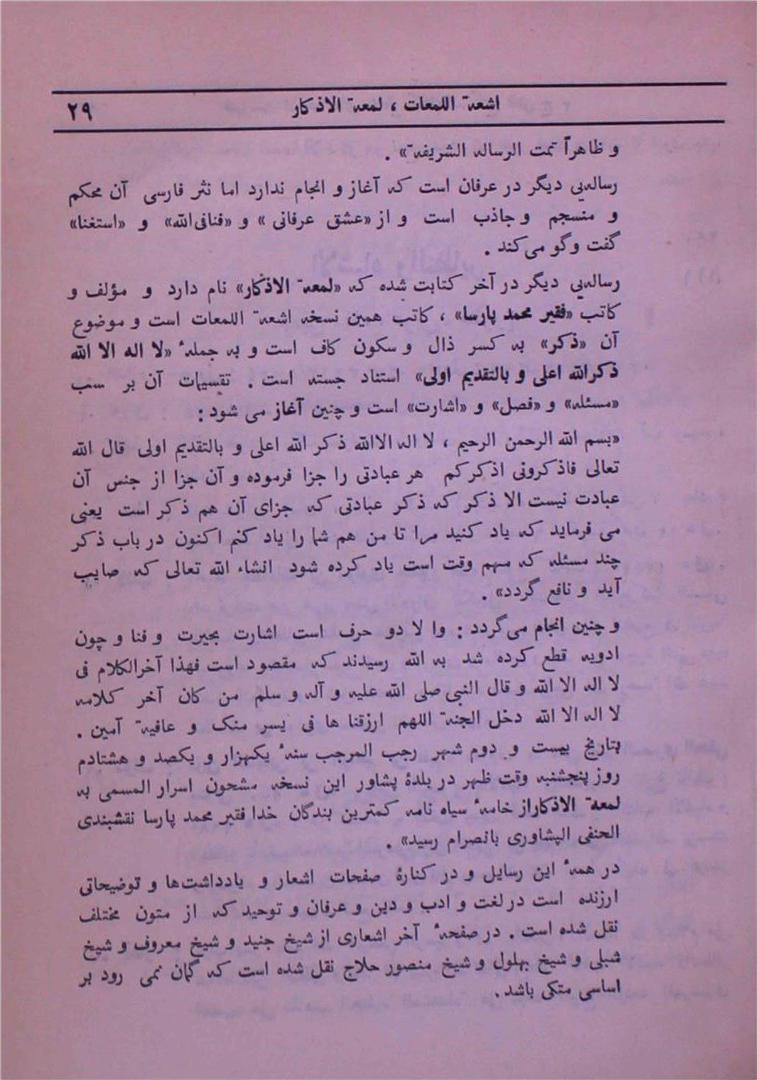 اشعة اللمعات ، لمعة الاذكار ۲۹
و ظاهراً تمت الرساله الشریفة» .
رساله‌یی دیگر در عرفان است که آغاز و انجام ندارد اما نثر فارسی آن محکم
و منسجم وجاذب است و از «عشق عرفانی» و «فنافی‌الله» و «استغنا»
گفت وگو می‌کند .
رساله‌یی دیگر در آخر کتابت شده که «لمعة الاذکار» نام دارد و مؤلف و
کاتب «فقیر محمد پارسا» ، کاتب همین نسخه اشعة اللمعات است و موضوع
آن «ذکر» به کسر ذال و سکون کاف است و به جملهٔ «لا اله الا الله
ذکرالله اعلی و بالتقدیم اولی» استناد جسته است . تقسیمات آن بر سبب
«مسئله» و «فصل» و «اشارت» است و چنین آغاز می شود :
«بسم الله الرحمن الرحیم ، لا اله الاالله ذکر الله اعلی و بالتقدیم اولی قال الله
تعالی فاذکرونی اذکرکم هر عبادتی را جزا فرموده و آن جزا از جنس آن
عبادت نیست الا ذکر که ذکر عبادتی که جزای آن هم ذکر است یعنی
می فرماید که یاد کنید مرا تا من هم شما را یاد کنم اکنون در باب ذکر
چند مسئله که مهم وقت است یاد کرده شود انشاء الله تعالی که صایب
آید و نافع گردد» .
و چنین انجام می‌گردد : وا لا دو حرف است اشارت بجیرت و فنا و چون
ادویه قطع کرده شد به الله رسیدند که مقصود است فهذا آخرالکلام فی
لا اله الا الله و قال النبی صلی الله علیه و آله و سلم من کان آخر کلامه
لا اله الا الله دخل الجنة اللهم ارزقنا ها فی یسر منک و عافیة آمین .
بتاریخ بیست و دوم شهر رجب المرجب سنهٔ یکهزار و یکصد و هشتادم
روز پنجشنبه وقت ظهر در بلدهٔ پشاور این نسخه مشحون اسرار المسمی به
لمعة الاذکاراز خامهٔ سیاه نامه کمترین بندگان خدا فقیر محمد پارسا نقشبندی
الحنفی الپشاوری بانصرام رسید» .
در همهٔ این رسایل و در کنارهٔ صفحات اشعار و یادداشت‌ها و توضیحاتی
ارزنده است در لغت و ادب و دین و عرفان و توحید که از متون مختلف
نقل شده است . در صفحهٔ آخر اشعاری از شیخ جنید و شیخ معروف و شیخ
شبلی و شیخ بهلول و شیخ منصور حلاج نقل شده است که گمان نمی رود بر
اساسی متکی باشد .